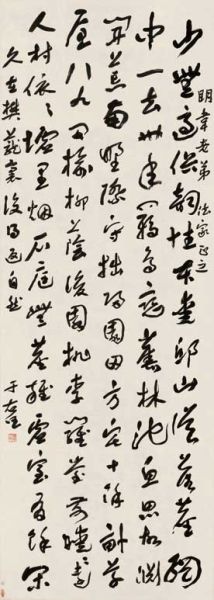 少無適俗韻性本愛邱山誤落塵網
中一去卅年羈鳥戀舊林池魚思故淵
開荒南野際守拙歸園田方宅十餘畝草
屋八九間榆柳蔭後園桃李羅堂前曖遠
人村依〻墟里煙戶庭無塵雜虛室有餘閑
久在樊籠裏復得返自然
明韋老弟法家正之
于右任